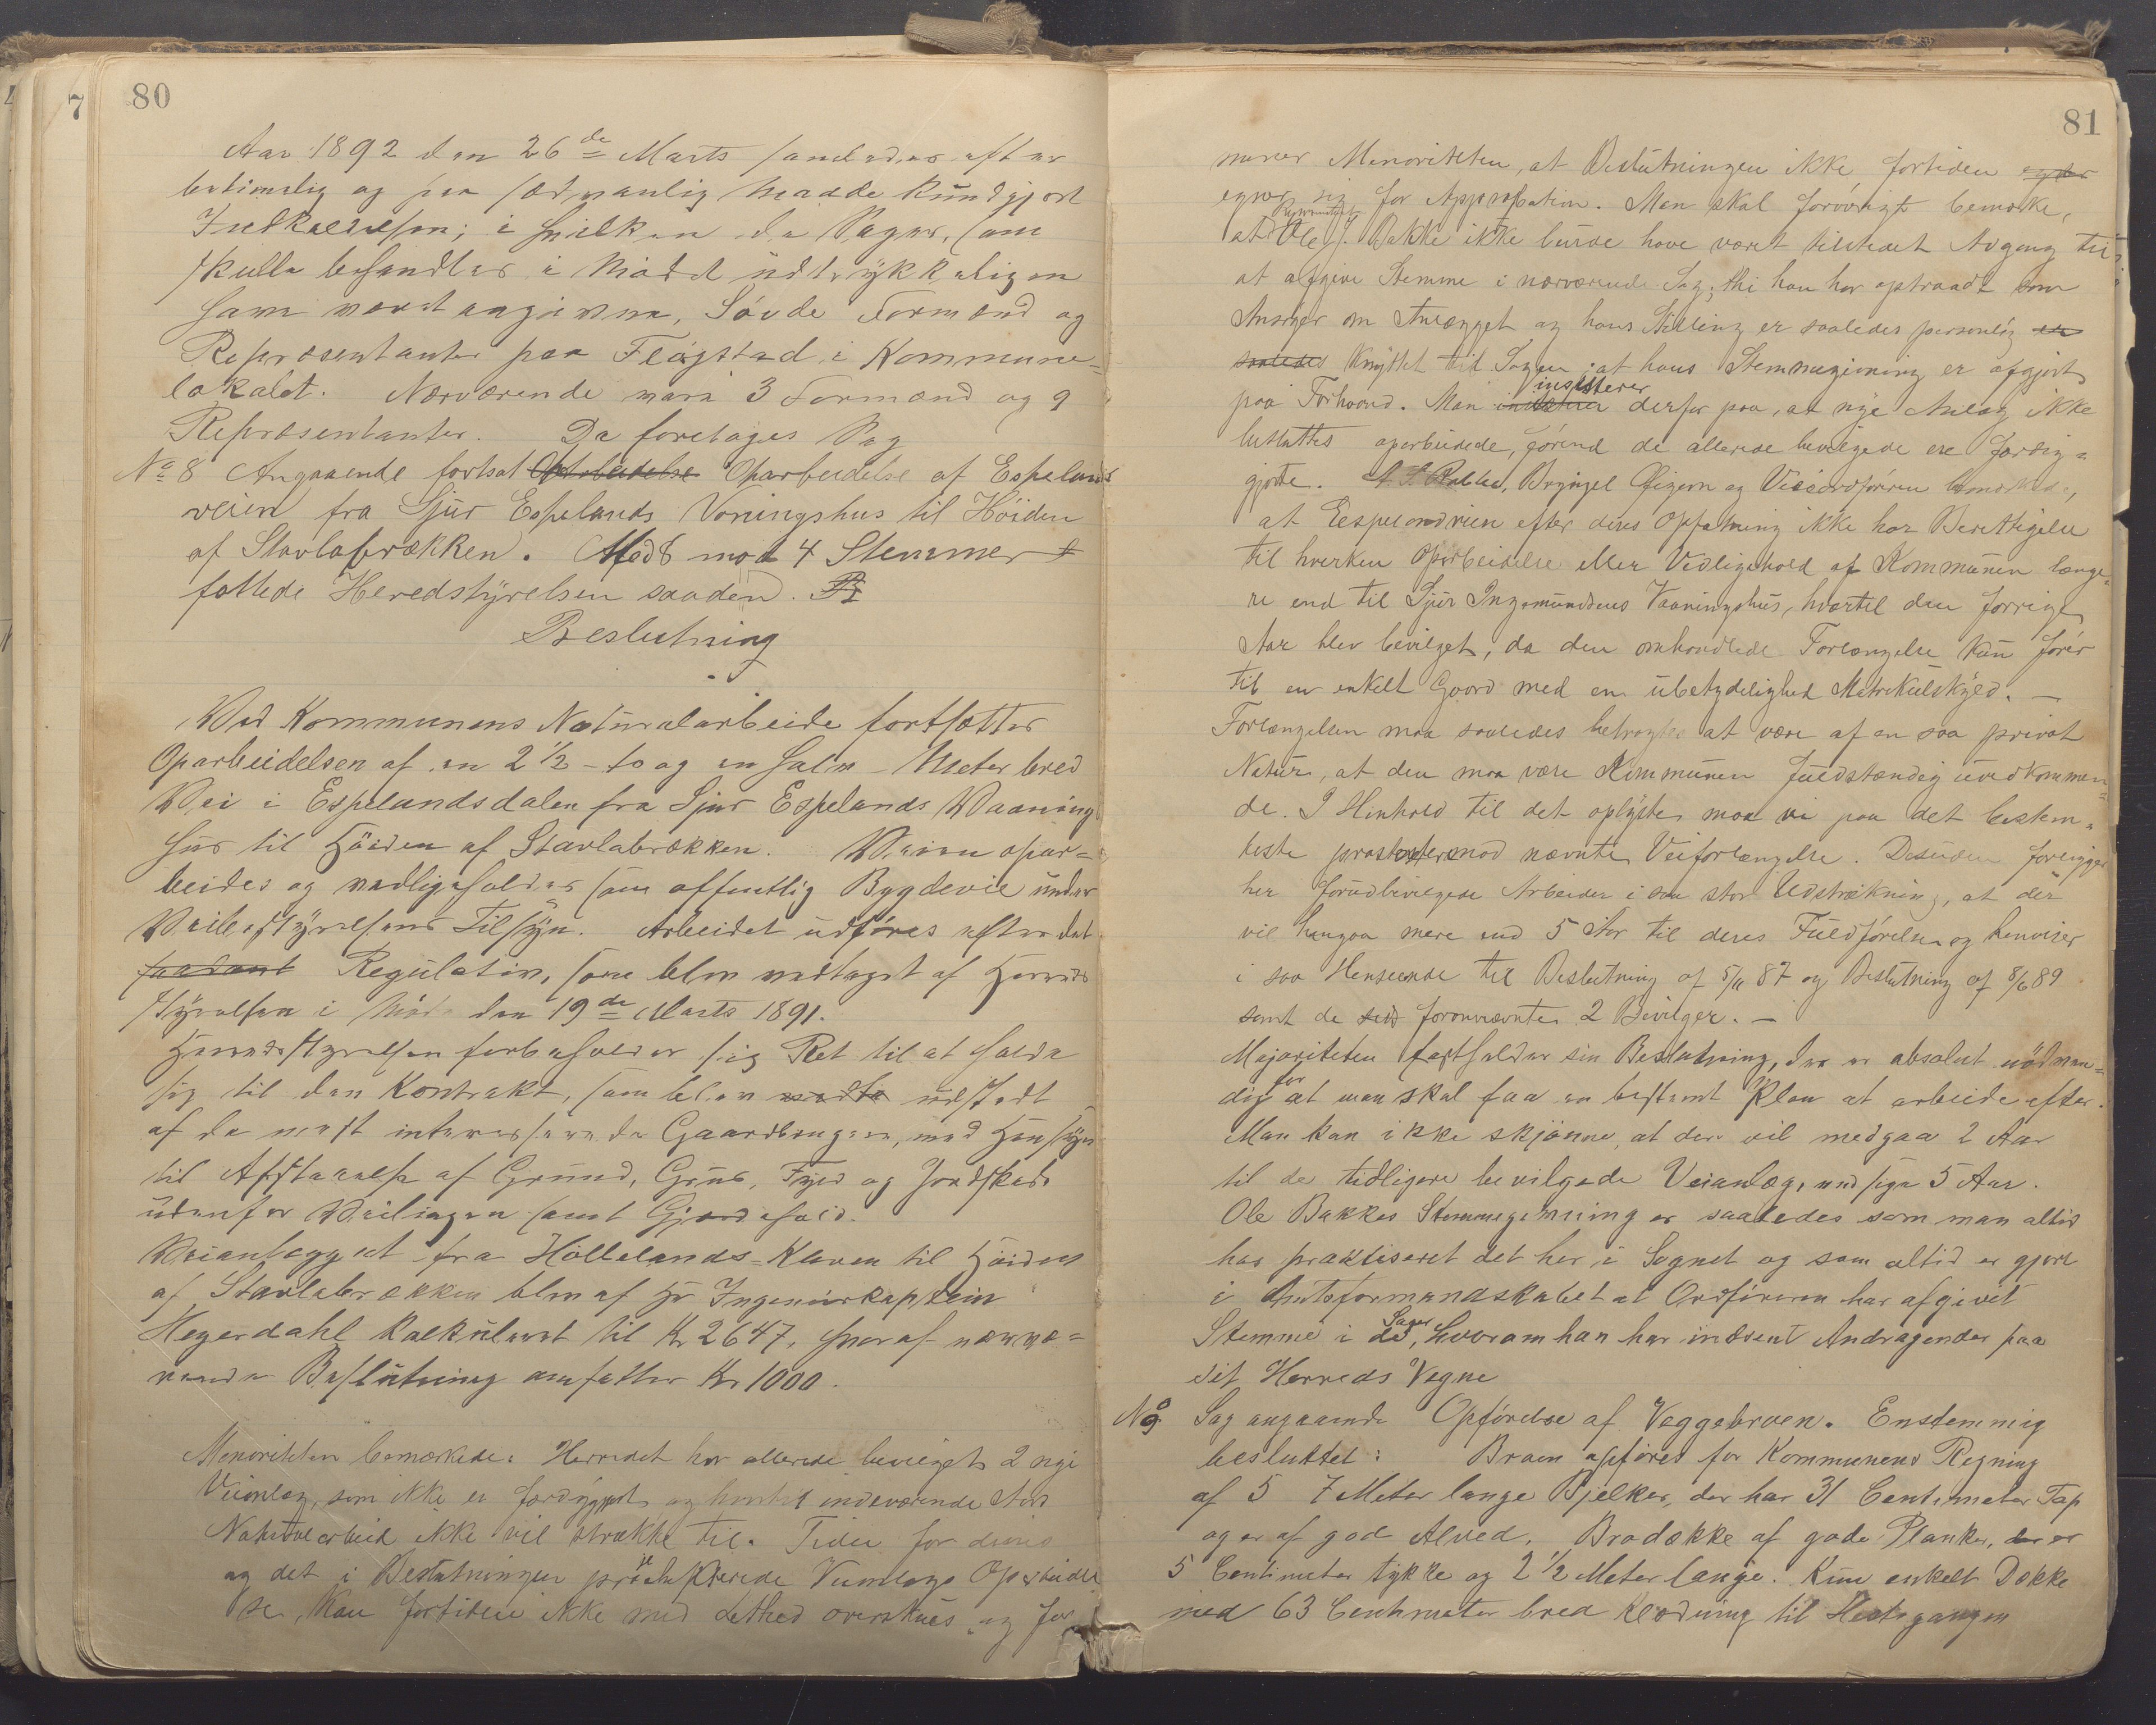 80
Aar 1892 den 26de Marts samledes efter
betimelig og paa sædvanlig Maade kundgjort
Indkaldelse; i hvilken de Sager, som
skulle behandles i Mødet udtrykkeligen
have været angivne, Sövde Formænd og
Repræsentanter paa Flögstad i Kommune-
lokalet. Nærværende vare 3 Formænd og 9
Repræsentanter. Da foretoges Sag
No 8 Angaaende fortsat Oparbeidelse af Espelands
veien fra Sjur Espelands Voningshus til Höiden
af Stavlabrækken. Mod 4 Stemmer
fattede Heredstyrelsen saaden.
Beslutning
Ved Kommunens Naturalarbeide fortsættes
Oparbeidelsen af en 2 1/2 - to og en halv - Meter bred
Vei i Espelandsdalen fra Sjur Espelands Vaanings
hus til Höiden af Stavlabrækken. Veien opar-
beides og vedligeholdes som offentlig Bygdevie under
Veibestyrelsens Tilsyn. Arbeidet udföres efter det
saadant Regulativ, som blev vedtaget af Herreds
styrelsen i Möde den 19de Marts 1891.
Herredsstyrelsen forbeholder sig Ret til at holde
sig til den Kontrakt, som blev udstedt
af de mest interesserende Gaardbrugere, med Hensyn
til Afstaaelse af Grund, Grus, Fyld og Jordskade
udenfor Veilinjen samt Gjerdehold.
Veianlægget fra Höllelands-Kleven til Höiden
af Stavlabrækken blev af Hr Ingeniörkaptein
Heyerdahl kalkuleret til Kr 2647, hvoraf nærvæ-
rende Beslutning omfatter Kr 1000.
Menoriteten bemærkede: Herredet har allerede bevilget 2 nye
Veianlæg, som ikke er færdiggjort og hvortil indeværende Aars
Naturalarbeid ikke vil strække til. Tiden for disses
og det i Beslutningen projekterede Veianlægs Oparbeidel
se, kan fortiden ikke med Lethed overskues og for
81
mener Menoriteten, at Beslutningen ikke fortiden
egner sig for Approbation. Man skal forövrigt bemærke,
at Ole J. Bakke ikke burde have været tilstedet Adgang til
at afgive Stemme i nærværende Sag; thi han har optraadt som
Ansöger om Anlægget og hans Stilling er saaledes personlig
saaledes knyttet til Sagen, at hans Stemmegivning er afgjort
paa Forhaand. Man insisterer derfor paa, at nye Anlæg ikke
besluttes oparbeidede, förend de allerede bevilgede ere færdig-
gjorte. Brynjel Öigern og Viceordföreren bemærkede,
at Espelandveien efter deres Opfatning ikke har Berettigelse
til hverken Oparbeidelse eller Vedligehold af Kommunen længe-
re end til Sjur Ingemundsens Vaaningshus, hvortil den forrige
Aar blev bevilget, da den omhandlede Forlængelse kun förer
til en enkelt Gaard med en ubetydelighed Matrikulskyld. —
Forlængelsen maa saaledes betragtes at være af en saa privat
Natur, at den maa være Kommunen fuldstændig uvedkommen-
de. I Henhold til det oplyste maa vi paa det bestem-
teste protestere mod nævnte Veiforlængelse. Desuden foreligger
her forudbevilgede Arbeider i saa stor Udstrækning, at der
vil hengaa mere end 5 Aar til deres Fuldförelse og henviser
i saa Henseende til Beslutning af 5/11 87 og Beslutning af 8/6 89
samt de foromnævnte 2 Bevilger. —
Majoriteten fastholder sin Beslutning, der er absolut nödven-
dig for at man skal faa en bestemt Plan at arbeide efter.
Man kan ikke skjönne, at der vil medgaa 2 Aar
til de tidligere bevilgede Veianlæg, end sige 5 Aar.
Ole Bakkes Stemmegivning er saaledes som man altid
har praktiseret det her i Sognet og som altid er gjort
i Amtsformandskabet at Ordföreren har afgivet
Stemme i de Sager, hvorom han har indsent Andragender paa
sit Herreds Vegne
No 9 Sag angaaende Opförelse af Veggebroen. Enstemmig
besluttet: Broen opföres for Kommunens Regning
af 5 7 Meter lange Bjelker, der har 31 Centimeter Top
og er af god Alved. Brodække af gode Planker, der er
5 Centimeter tykke og 2 1/2 Meter lange. Kun enkelt Dække
med 63 Centimeter bred Klædning til Hestegangen